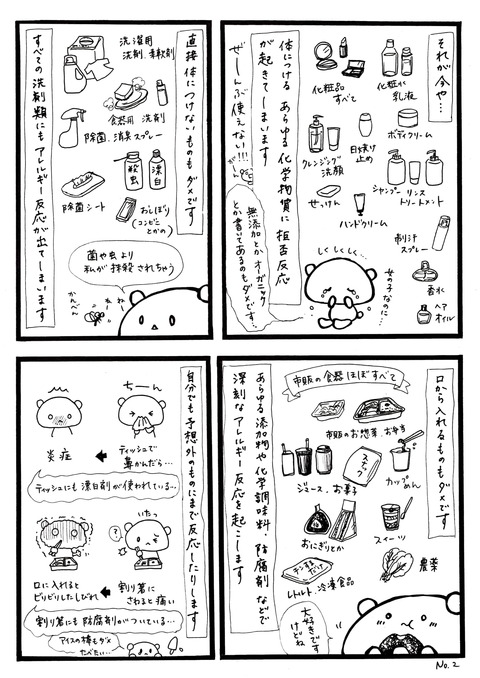 それが今や…
化粧品
すべて
化粧水
乳液
クレンジング
洗顔
日焼け
止め
ボディクリーム
せっけん
シャンプー リンス
トリートメント
ハンドクリーム
制汗
スプレー
香水
ヘア
オイル
体につける あらゆる 化学物質に 拒否反応
が起きてしまいます
ぜーんぶ使えない!!!
無添加とかオーガニック
とか書いてあるのもダメです…
しくしくしく…
女の子なのに…
直接体につけないものもダメです
洗濯用
洗剤、柔軟剤
食器用 洗剤
除菌、消臭スプレー
殺虫
漂白
除菌シート
おしぼり
(コンビニ
とかの)
すべての洗剤類にもアレルギー反応が出てしまいます
菌や虫より
私が抹殺されちゃう
ねーねー
かんべん
口から入れるものもダメです
市販の食器ほぼすべて
市販のお惣菜、お弁当
ジュース、お菓子
スナック
カップ
めん
おにぎりとか
スイーツ
チンするだけ
レトルト、冷凍食品
農薬
あらゆる添加物や化学調味料、防腐剤などで
深刻なアレルギー反応を起こします
大好きです
けどね
自分でも予想外のものにまで反応したりします
ちーん
ティッシュで
鼻かんだら…
炎症
ティッシュにも漂白剤が使われている…
いたっ
?
割り箸に
さわると痛い
口に入れると
ピリピリしたしびれ
割り箸にも防腐剤がついている…
アイスの棒もダメ
たべたい…
No.2